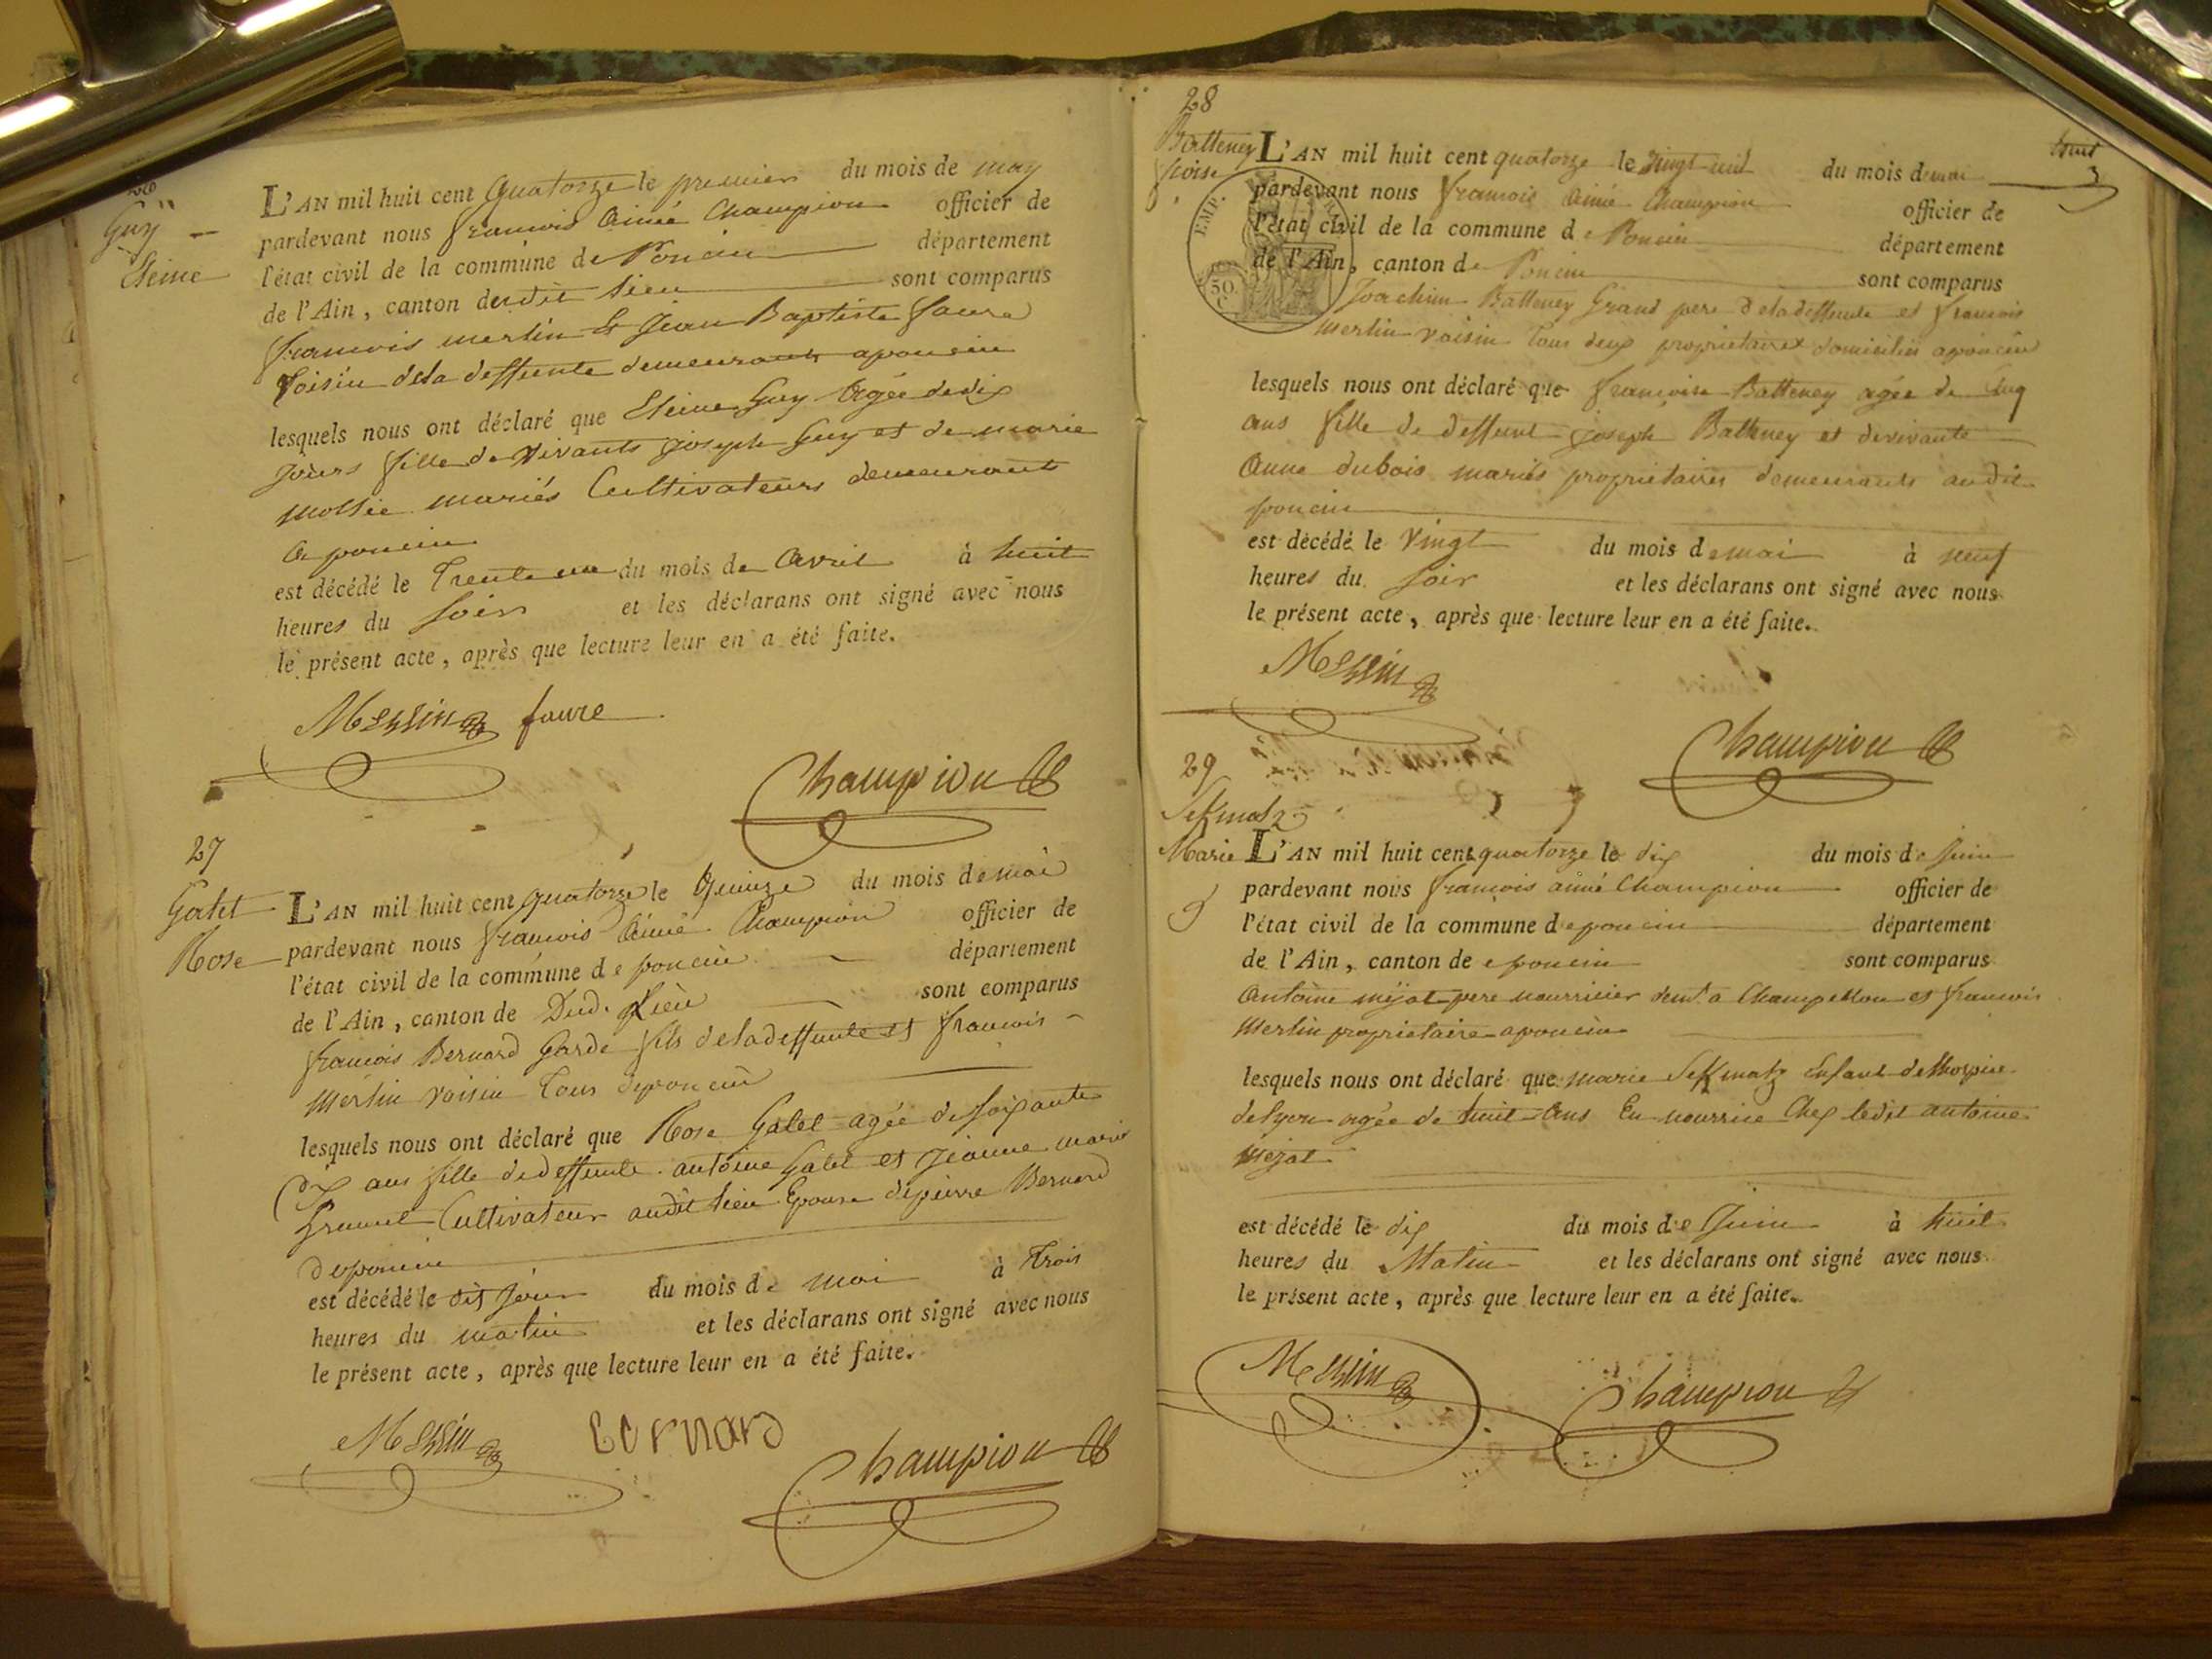 26
Guy
Eleine
L'AN mil huit cent quatorze le premier du mois de may
pardevant nous francois Aimé Champion officier de
l'état civil de la commune de Poncin département
de l'Ain, canton dudit lieu sont comparus
francois merlin et Jean Baptiste faure
Voisin dela deffunte demeurants aponcin
lesquels nous ont déclaré que Eleine Guy Agée de dix
Jours fille de Vivants joseph Guy et de marie
mollie mariés Cultivateurs demeurant
a poncin
est décédé le Trente du mois de Avril à huit
heures du soir et les déclarans ont signé avec nous
le présent acte, après que lecture leur en a été faite.
Merlin faure
Champion
27
Galet
Rose
L'AN mil huit cent quatorze le Quinze du mois de mai
pardevant nous francois Aimé Champion officier de
l'état civil de la commune de poncin département
de l'Ain, canton de Dud. Lieu sont comparus
francois Bernard Garde fils deladeffunte et francois
Merlin voisin Tous deponcin
lesquels nous ont déclaré que Rose Galet agée de soixante
dix ans fille de deffunte antoine Galet et Jeanne marie
Brunet Cultivateur audit lieu Epouse depierre Bernard
deponcin
est décédé le dit jour du mois de mai à Trois
heures du matin et les déclarans ont signé avec nous
le présent acte, après que lecture leur en a été faite.
Merlin Bernard
Champion
28
Batteney
froise
huit
L'AN mil huit cent quatorze le Vingt un du mois de mai
pardevant nous francois Aimé Champion officier de
l'état civil de la commune de Poncin département
de l'Ain, canton de Poncin sont comparus
EMP.
50
C
Joachim Batteney Grand pere deladeffunte et francois
Merlin voisin Tous deux proprietaires domiciliés aponcin
lesquels nous ont déclaré que francoise Batteney agée de Cinq
ans fille de deffunt joseph Batteney et devivante
Anne dubois mariés proprietaires demeurants audit
poncin
est décédé le Vingt du mois de mai à neuf
heures du soir et les déclarans ont signé avec nous
le présent acte, après que lecture leur en a été faite.
Merlin
Champion
29
Sekmatz
Marie
L'AN mil huit cent quatorze le dix du mois de Juin
pardevant nous francois aimé Champion officier de
l'état civil de la commune de poncin département
de l'Ain, canton de poncin sont comparus
Antoine mejat pere nourricier demt a Champeillon et francois
Merlin proprietaire aponcin
lesquels nous ont déclaré que marie Sekmatz Enfant delhospice
delyon agée de huit Ans En nourrice Chez ledit antoine
Mejat
est décédé le dix du mois de Juin à huit
heures du Matin et les déclarans ont signé avec nous
le présent acte, après que lecture leur en a été faite.
Merlin
Champion